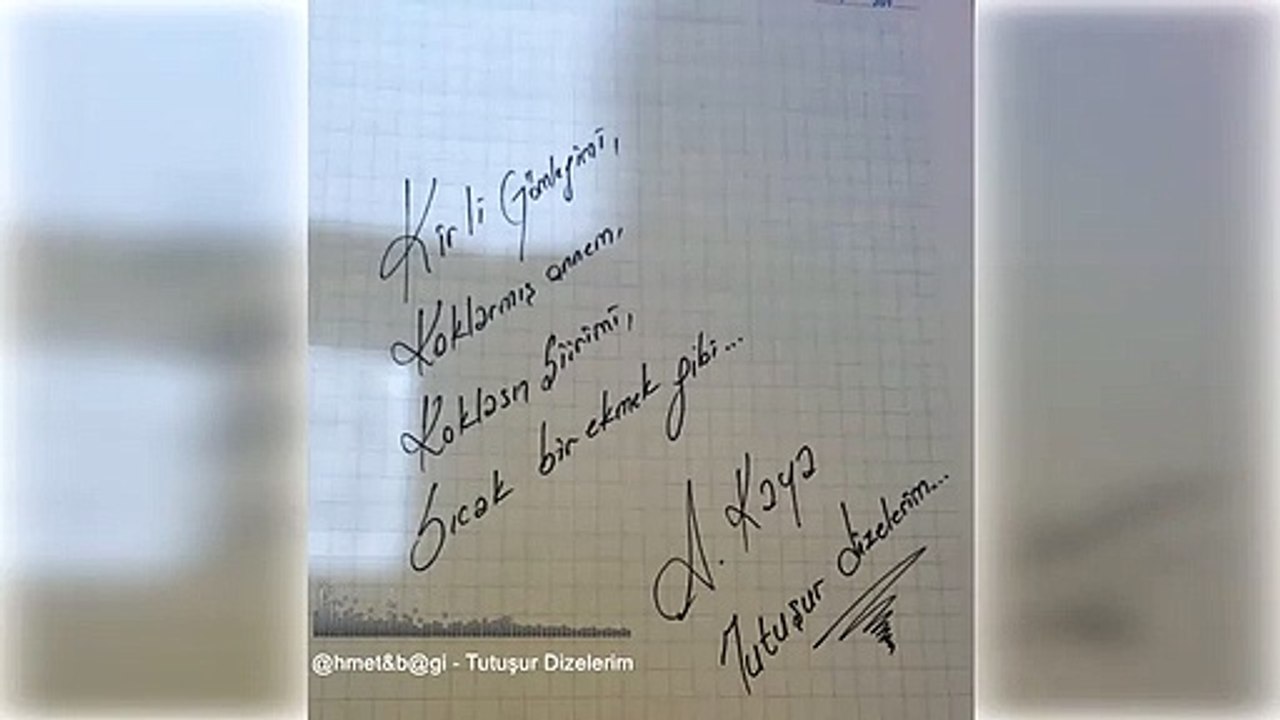 Kirli Gömleğimi,
Koklarmış annem,
Koklasın Şiirimi,
Sıcak bir ekmek gibi...
A. Kaya
Tutuşur dizelerim...
@hmet&b@gi - Tutuşur Dizelerim